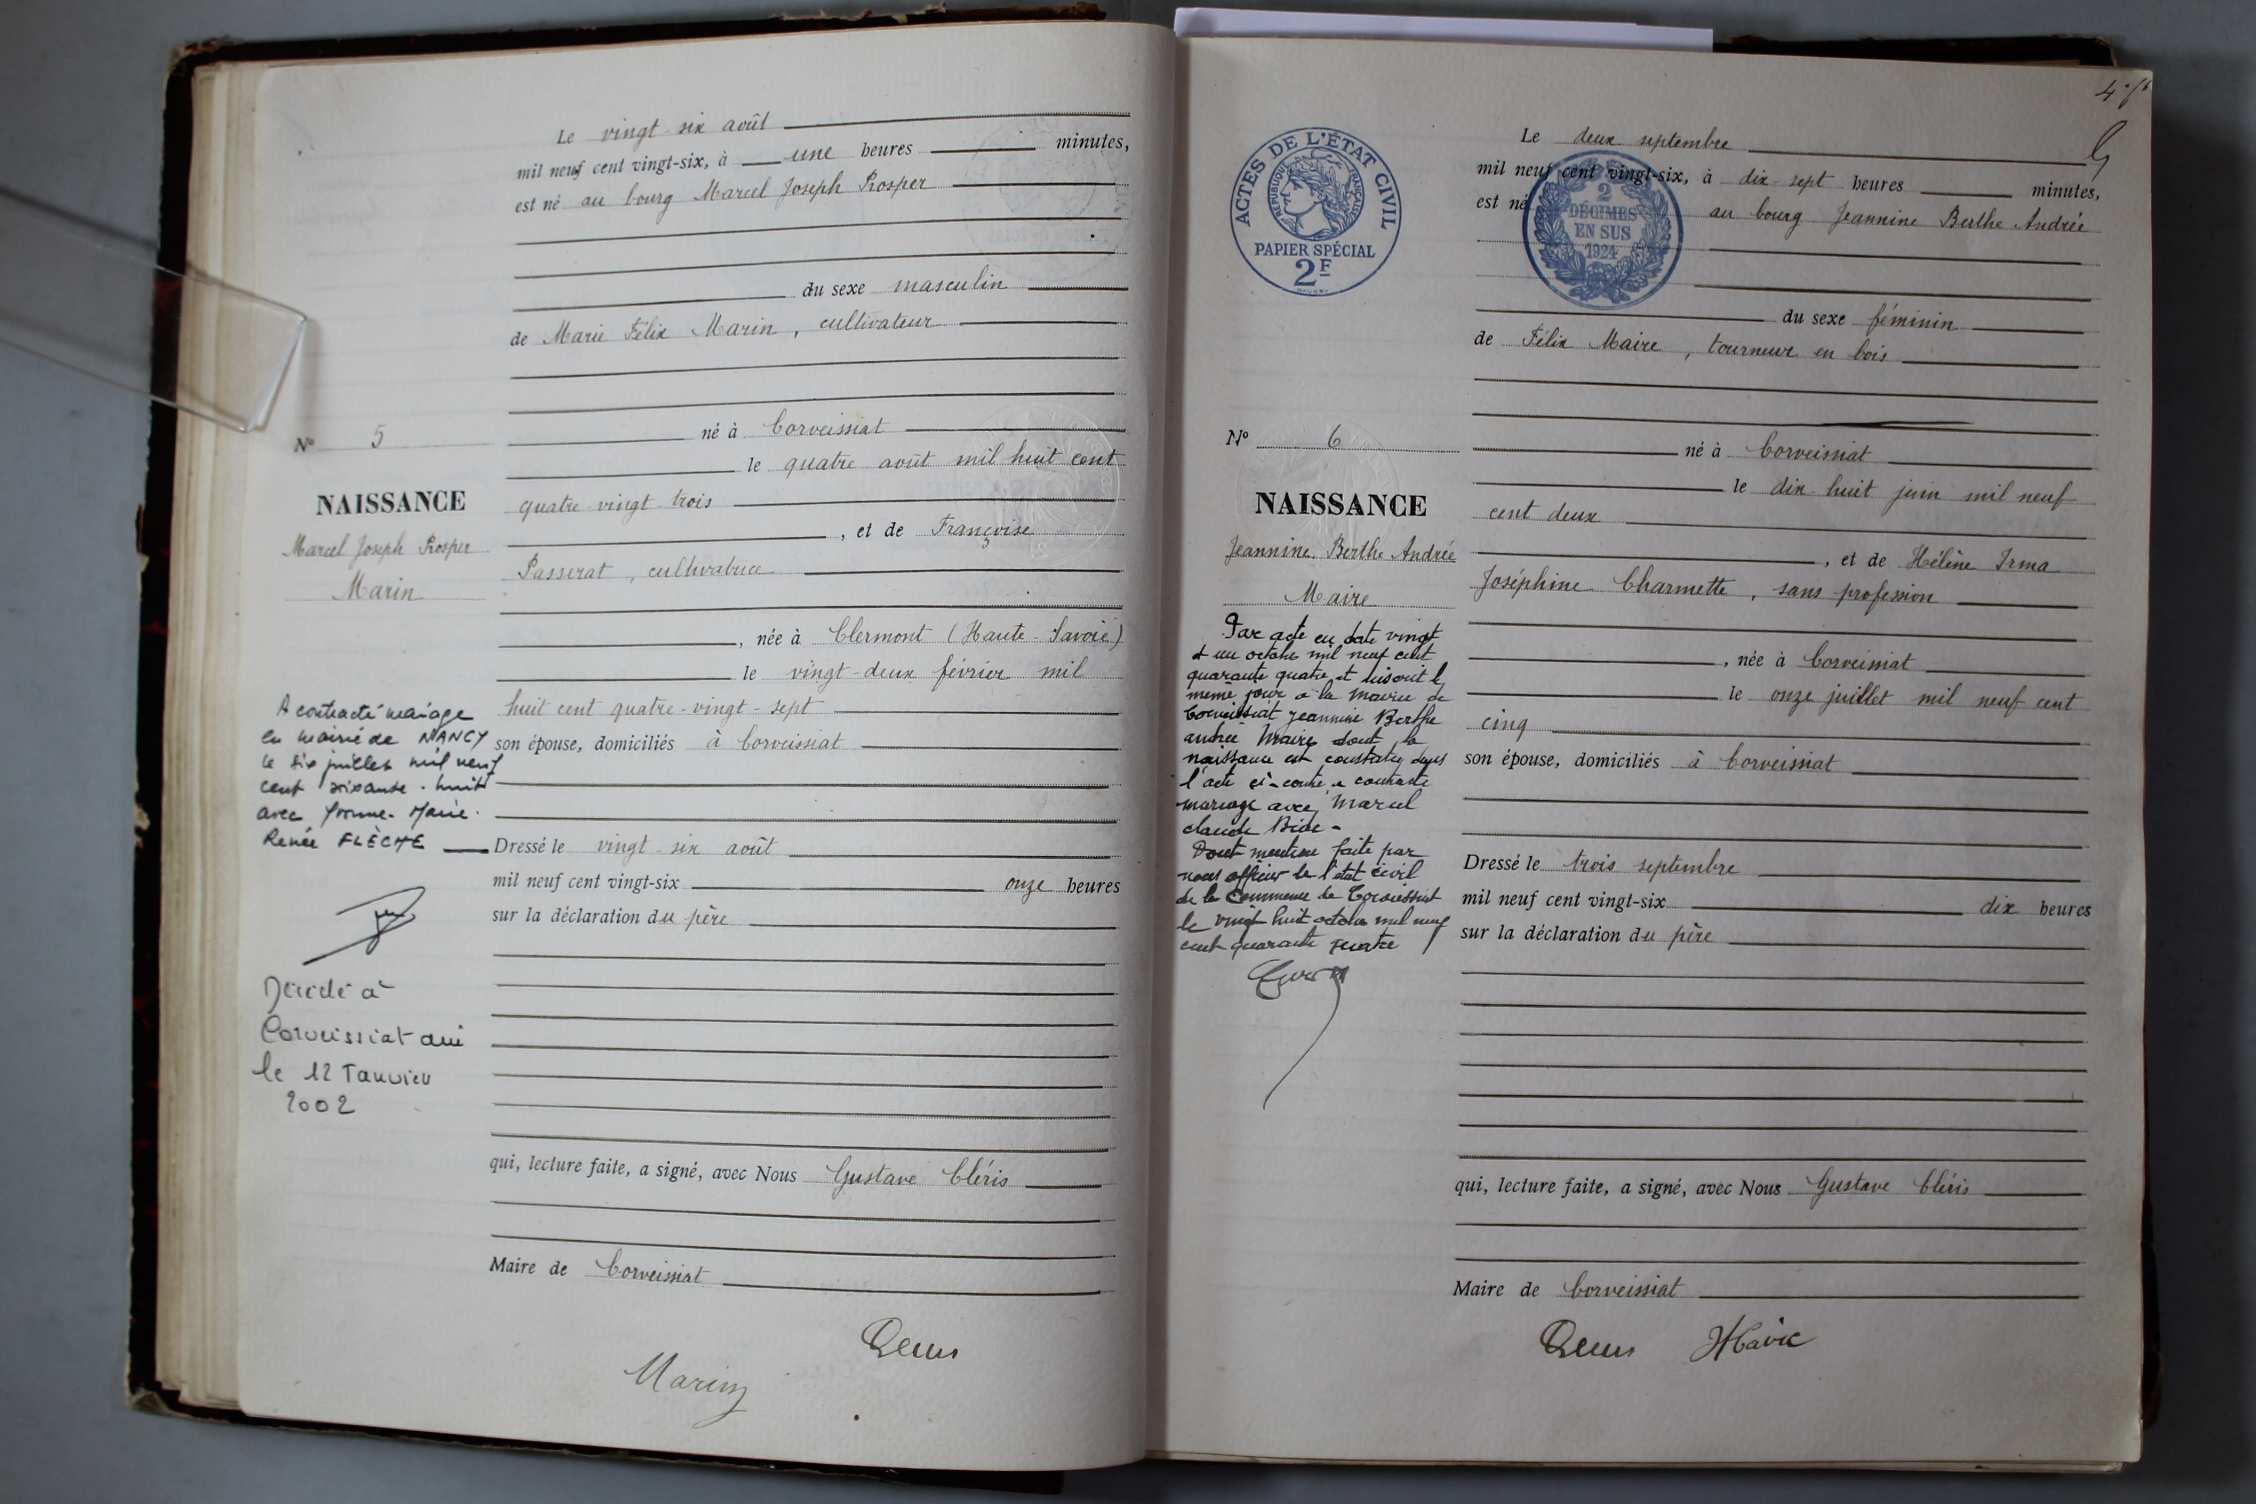 Le vingt-six août
mil neuf cent vingt-six, à une heures minutes,
est né au bourg Marcel Joseph Prosper
du sexe masculin
de Marie Félix Marin, cultivateur
né à Corveissiat
le quatre août mil huit cent
quatre-vingt-trois
, et de Françoise
Passerat, cultivatrice
, née à Clermont (Haute-Savoie)
le vingt-deux février mil
huit cent quatre-vingt-sept
son épouse, domiciliés à Corveissiat
Dressé le vingt-six août
mil neuf cent vingt-six onze heures
sur la déclaration du père
qui, lecture faite, a signé, avec Nous Gustave Cléris
Maire de Corveissiat
Marin
N° 5
NAISSANCE
Marcel Joseph Prosper
Marin
A contracté mariage
en mairie de NANCY
le six juillet mil neuf
cent soixante-huit
avec Yvonne-Marie-
Renée FLÈCHE
Décédé à
Corveissiat Ain
le 12 Janvier
2002
ACTES DE L'ÉTAT CIVIL
RÉPUBLIQUE FRANÇAISE
PAPIER SPÉCIAL
2F
2
DÉCIMES
EN SUS
1924
Le deux septembre
mil neuf cent vingt-six, à dix-sept heures minutes,
est né au bourg Jeannine Berthe Andrée
du sexe féminin
de Félix Maire, tourneur en bois
né à Corveissiat
le dix-huit juin mil neuf
cent deux
, et de Hélène Irma
Joséphine Charmette, sans profession
, née à Corveissiat
le onze juillet mil neuf cent
cinq
son épouse, domiciliés à Corveissiat
Dressé le trois septembre
mil neuf cent vingt-six dix heures
sur la déclaration du père
qui, lecture faite, a signé, avec Nous Gustave Cléris
Maire de Corveissiat
N° 6
NAISSANCE
Jeannine Berthe Andrée
Maire
Par acte en date vingt
et un octobre mil neuf cent
quarante quatre et inscrit le
même jour à la mairie de
Corveissiat Jeannine Berthe
andrée Maire dont la
naissance est constatée dans
l'acte ci-contre a contracté
mariage avec Marcel
claude
Dont mention faite par
nous officier de l'état civil
de la commune de Corveissiat
le vingt huit octobre mil neuf
cent quarante quatre